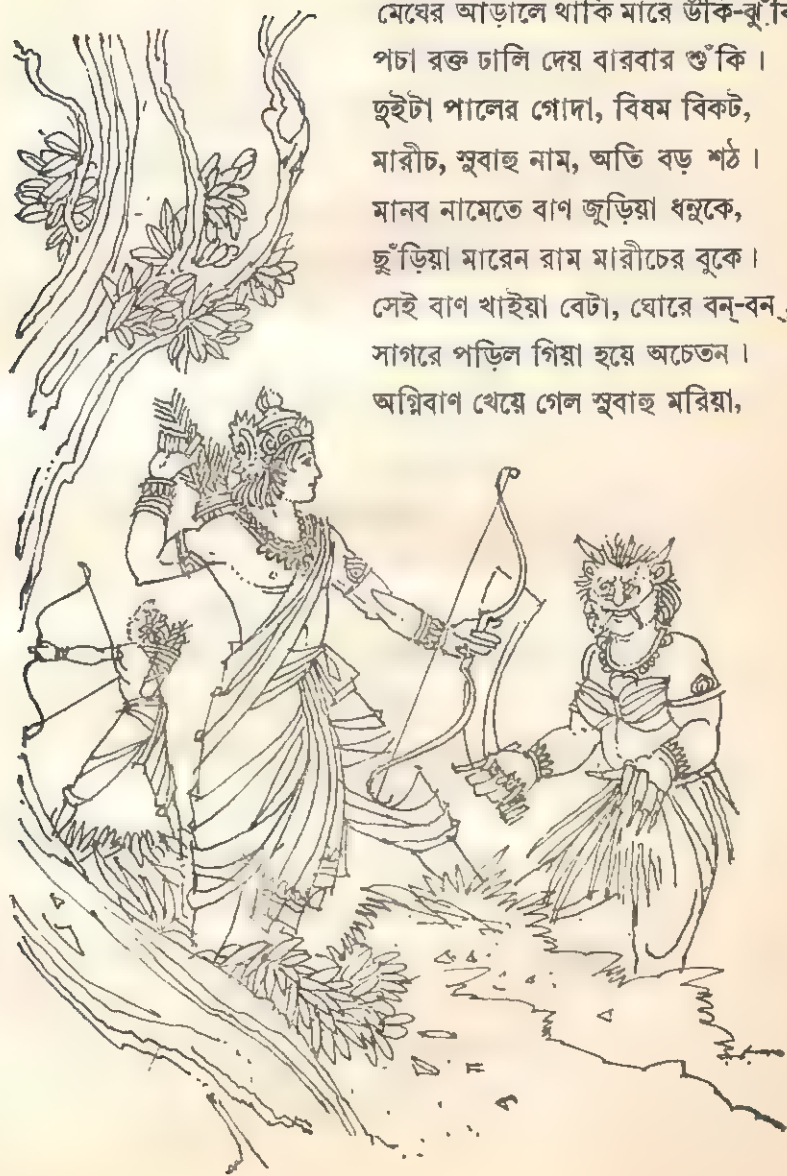 মেঘের আড়ালে থাকি মারে উঁকি-ঝুঁকি
পচা রক্ত ঢালি দেয় বারবার শুঁকি ।
দুইটা পালের গোদা, বিষম বিকট,
মারীচ, সুবাহু নাম, অতি বড় শঠ ।
মানব নামেতে বাণ জুড়িয়া ধনুকে,
ছুঁড়িয়া মারেন রাম মারীচের বুকে ।
সেই বাণ খাইয়া বেটা, ঘোরে বন্-বন্,
সাগরে পড়িল গিয়া হয়ে অচেতন ।
অগ্নিবাণ খেয়ে গেল সুবাহু মরিয়া,